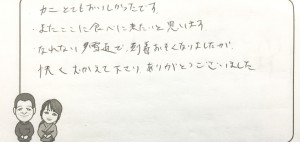 カニ とてもおいしかったです
・またここに食べに来たいと思います
・なれない雪道で、到着おそくなりましたが
快くむかえて下さり ありがとうございました